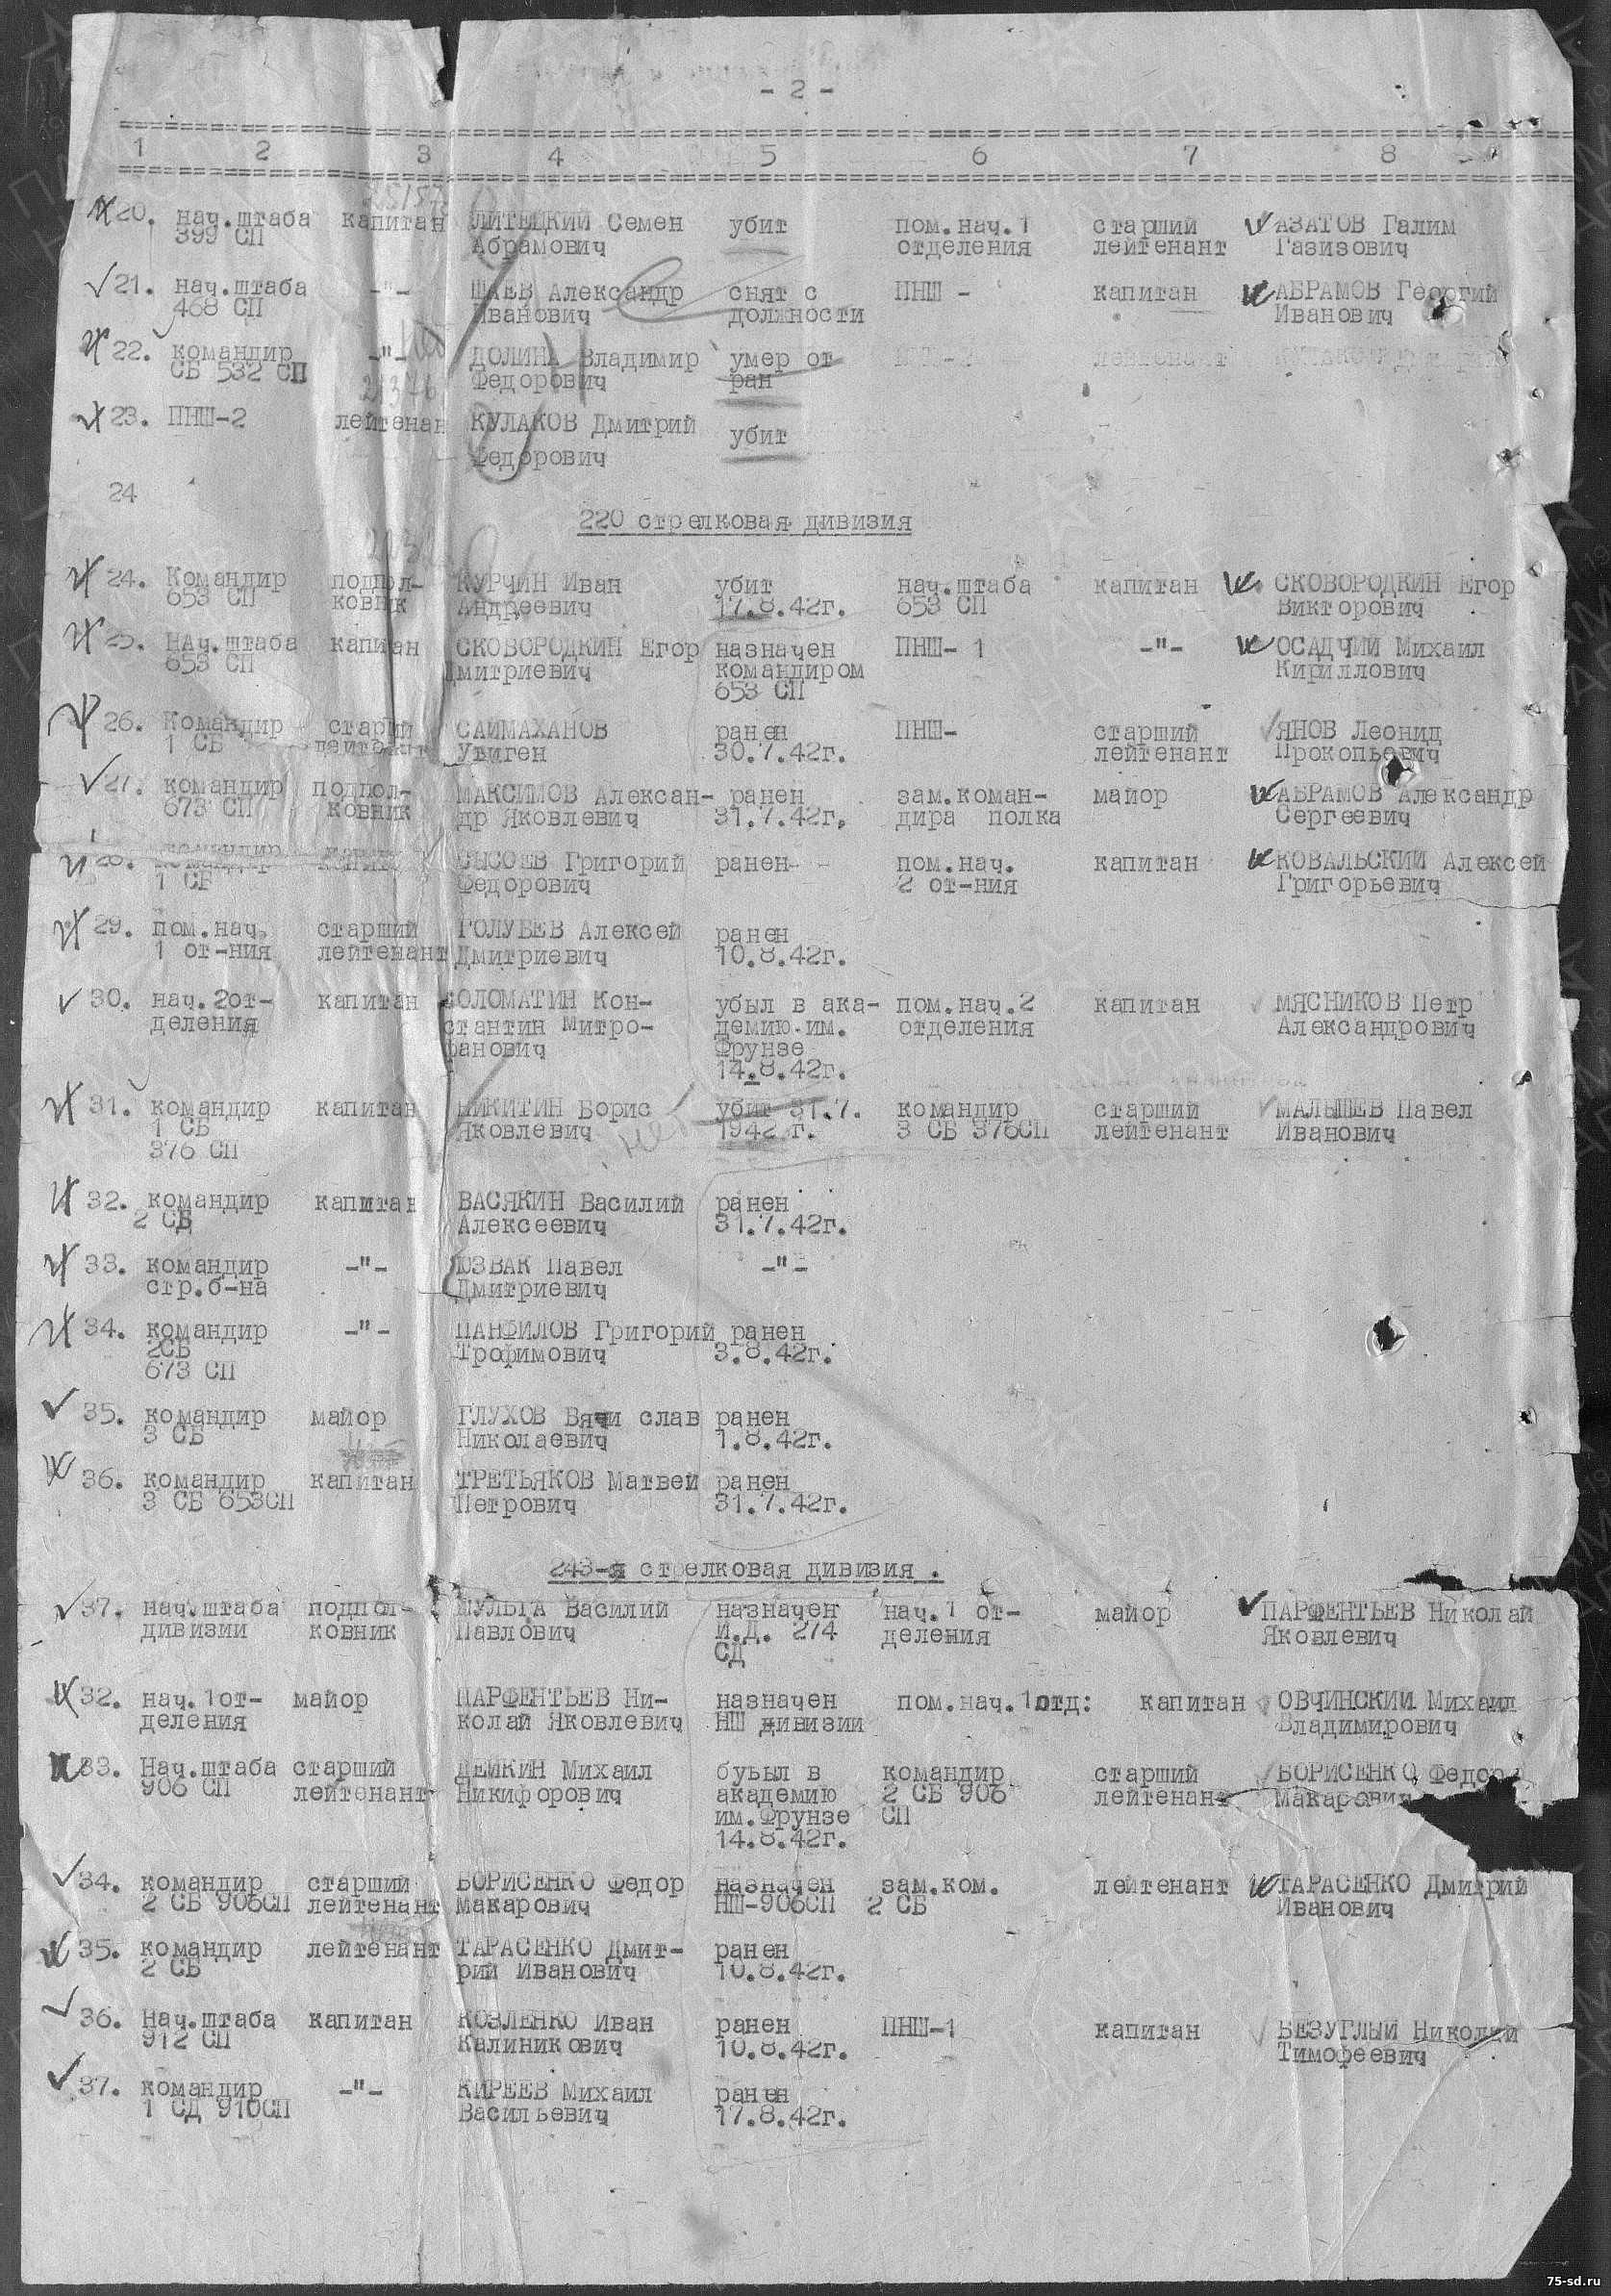 - 2 -
1 2 3 4 5 6 7 8
20. нач.штаба капитан ЛИТЕЦКИЙ Семен убит пом.нач.1 старший АЗАТОВ Галим
399 СП Абрамович отделения лейтенант Газизович
21. нач.штаба -"- ШАЕВ Александр снят с ПНШ - капитан АБРАМОВ Георгий
468 СП Иванович должности Иванович
22. командир -"- ДОЛИНА Владимир умер от
СБ 532 СП Федорович ран
23. ПНШ-2 лейтенан КУЛАКОВ Дмитрий убит
Федорович
24
220 стрелковая дивизия
24. Командир подпол- КУРЧИН Иван убит нач.штаба капитан СКОВОРОДКИН Егор
653 СП ковник Андреевич 17.8.42г. 653 СП Викторович
25. НАч.штаба капитан СКОВОРОДКИН Егор назначен ПНШ- 1 -"- ОСАДЧИЙ Михаил
653 СП Дмитриевич командиром Кириллович
653 СП
26. Командир старий САЙМАХАНОВ ранен ПНШ- старший ЯНОВ Леонид
1 СБ лейтенант Увиген 30.7.42г. лейтенант Прокопьевич
27. командир подпол- МАКСИМОВ Алексан- ранен зам.коман- майор АБРАМОВ Александр
673 СП ковник др Яковлевич 31.7.42г. дира полка Сергеевич
28. командир СЫСОЕВ Григорий ранен- - пом.нач. капитан КОВАЛЬСКИЙ Алексей
1 СБ Федорович 2 от-ния Григорьевич
29. пом.нач. старший ГОЛУБЕВ Алексей ранен
1 от-ния лейтенант Дмитриевич 10.8.42г.
30. нач.2от- капитан СОЛОМАТИН Кон- убыл в ака- пом.нач.2 капитан МЯСНИКОВ Петр
деления стантин Митро- демию.им. отделения Александрович
фанович Фрунзе
14.8.42г.
31. командир капитан НИКИТИН Борис убит 31.7. командир старший МАЛЫШЕВ Павел
1 СБ Яковлевич 1942 г. 3 СБ 376СП лейтенант Иванович
376 СП
32. командир капитан ВАСЯКИН Василий ранен
2 СБ Алексеевич 31.7.42г.
33. командир -"- ЮЗВАК Павел -"-
стр.б-на Дмитриевич
34. командир -"- ПАНФИЛОВ Григорий ранен
2СБ Трофимович 3.8.42г.
673 СП
35. командир майор ГЛУХОВ Вячи слав ранен
3 СБ Николаевич 1.8.42г.
36. командир капитан ТРЕТЬЯКОВ Матвей ранен
3 СБ 653СП Петрович 31.7.42г.
243-я стрелковая дивизия .
37. нач.штаба подпол- ШУЛЬГА Василий назначен нач.1 от- майор ПАРФЕНТЬЕВ Николай
дивизии ковник Павлович И.Д. 274 деления Яковлевич
СД
32. нач.1от- майор ПАРФЕНТЬЕВ Ни- назначен пом.нач.1отд: капитан ОВЧИНСКИЙ Михаил
деления колай Яковлевич НШ дивизии Владимирович
33. Нач.штаба старший ДЕМКИН Михаил буыл в командир старший БОРИСЕНКО Федор
906 СП лейтенант Никифорович академию 2 СБ 906 лейтенант Макарович
им.Фрунзе СП
14.8.42г.
34. командир старший БОРИСЕНКО Федор назначен зам.ком. лейтенант ТАРАСЕНКО Дмитрий
2 СБ 906СП лейтенант Макарович НШ-906СП 2 СБ Иванович
35. командир лейтенант ТАРАСЕНКО Дмит- ранен
2 СБ рий Иванович 10.8.42г.
36. Нач.штаба капитан КОЗЛЕНКО Иван ранен ПНШ-1 капитан БЕЗУГЛЫЙ Николай
912 СП Калиникович 10.8.42г. Тимофеевич
37. командир -"- КИРЕЕВ Михаил ранен
1 СД 910СП Васильевич 17.8.42г.
75-sd.ru